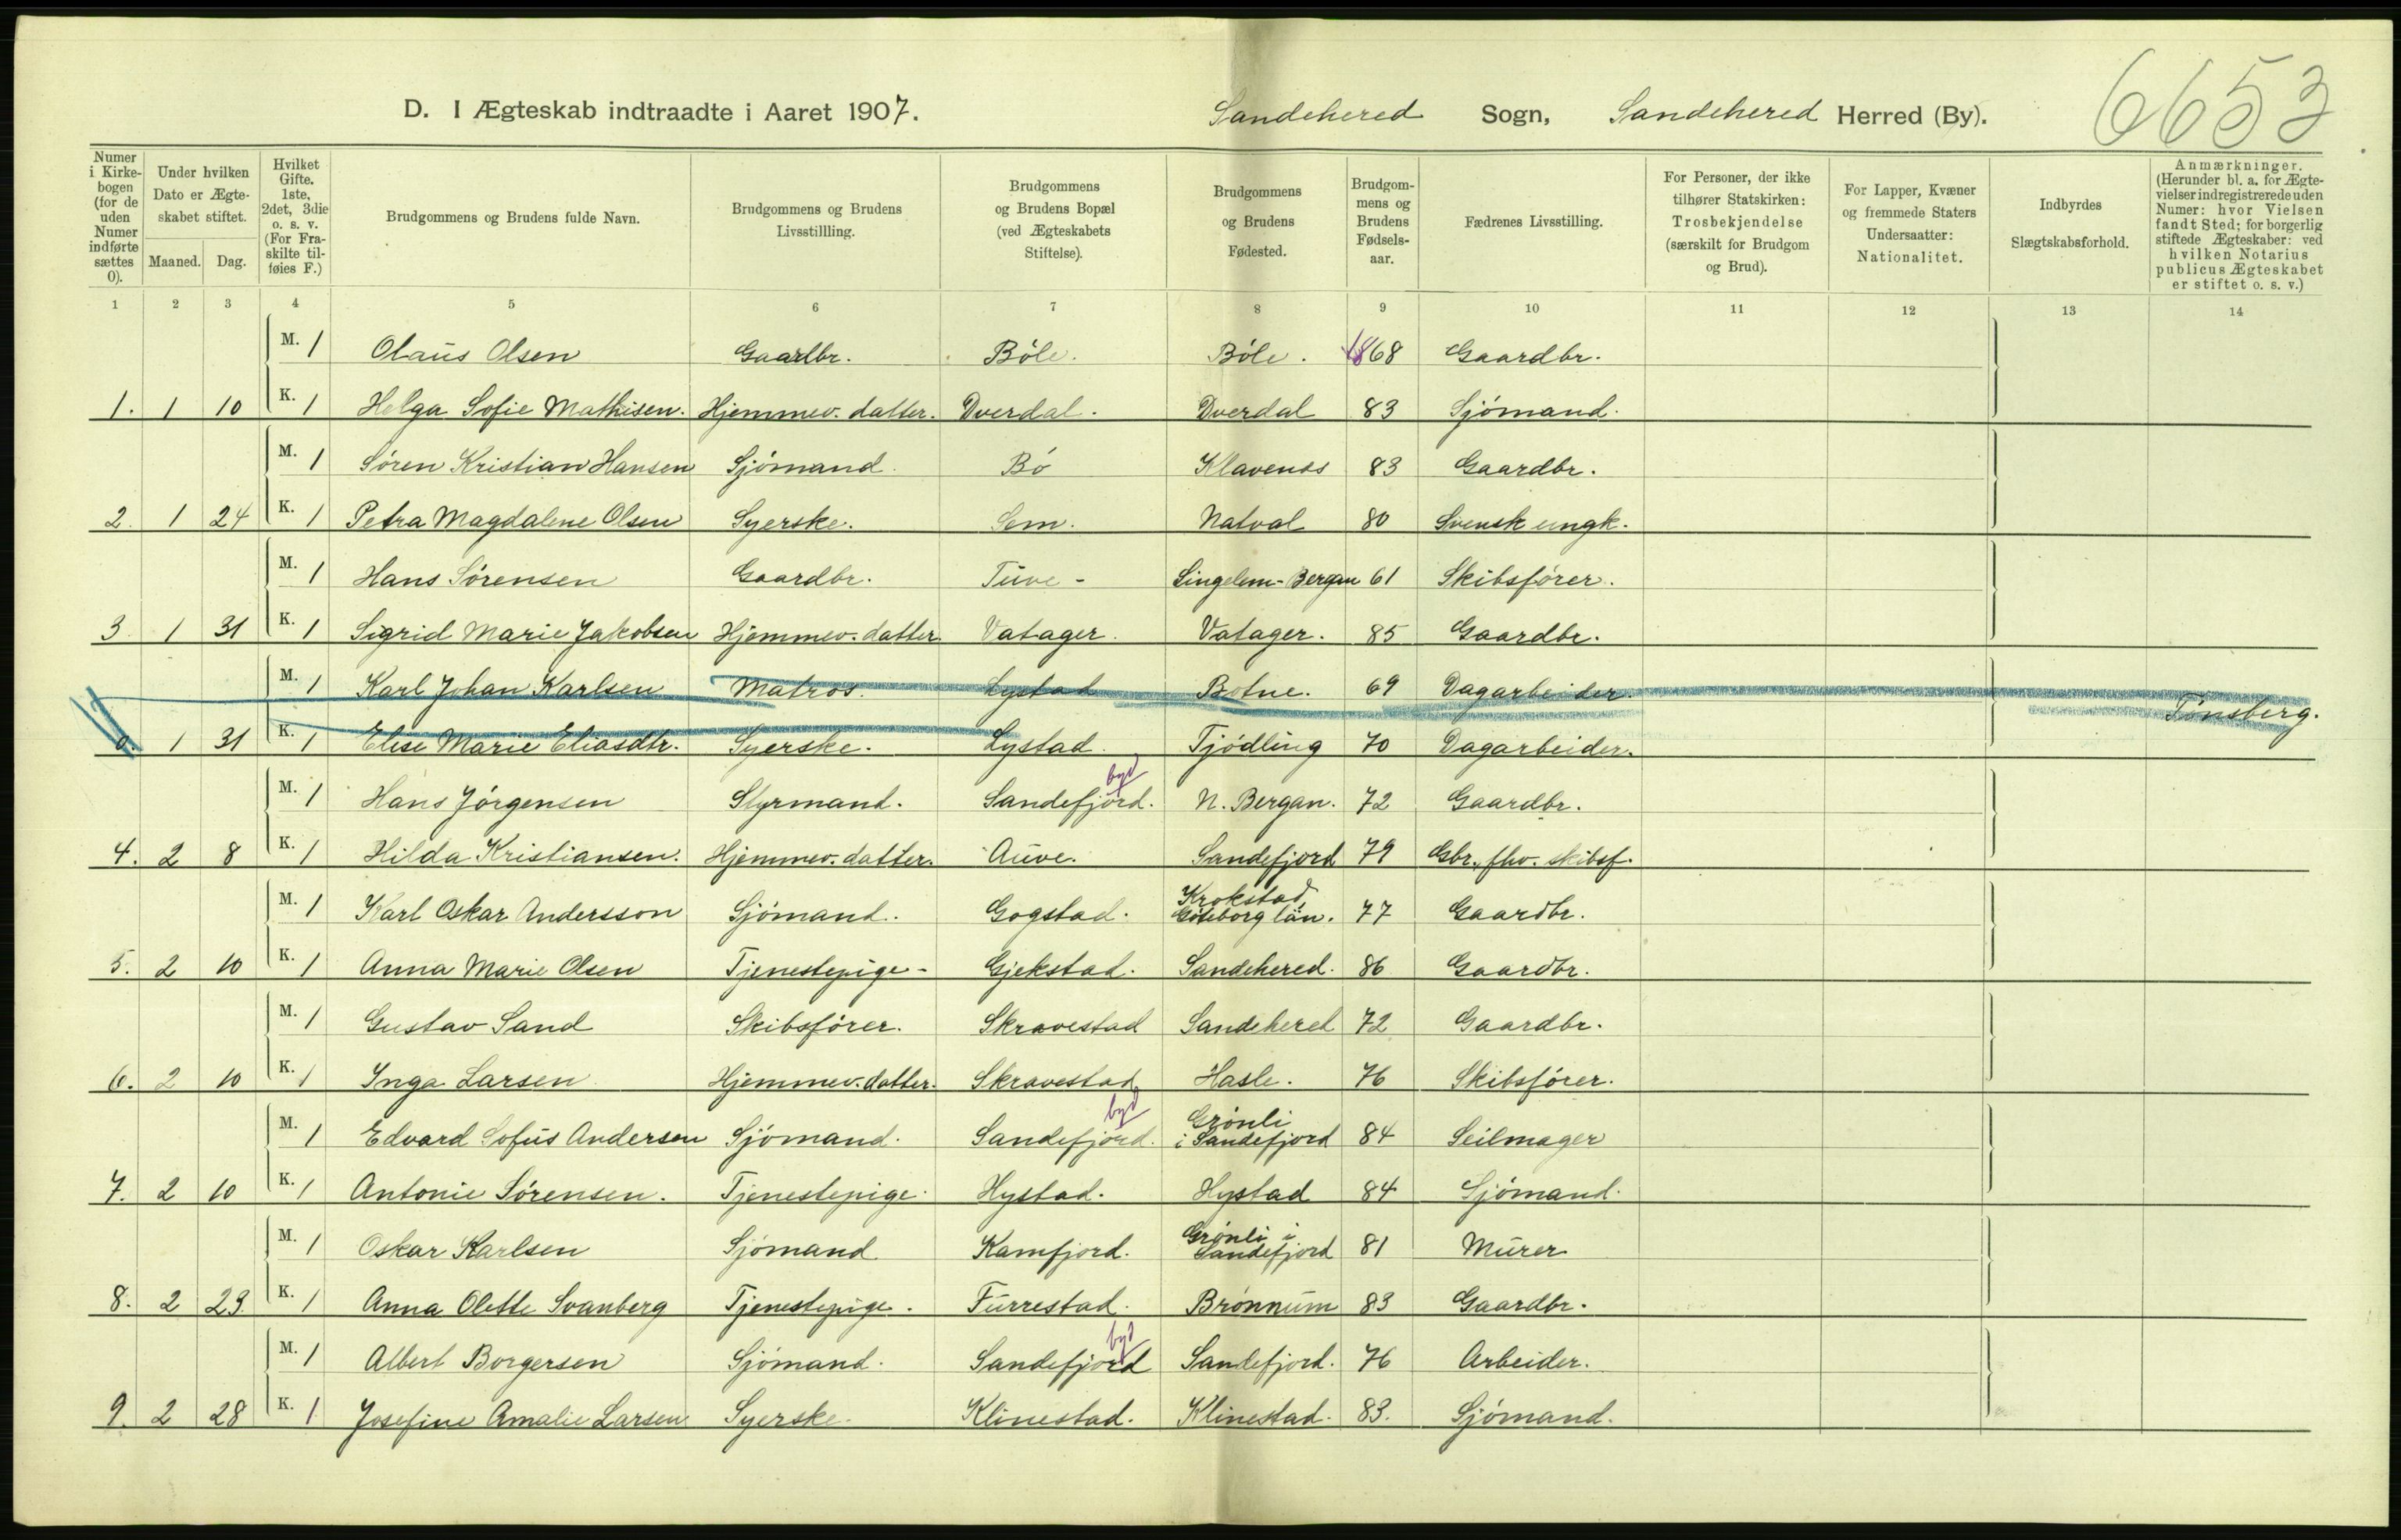 6653
D. I Ægteskab indtraadte i Aaret 1907. Sandehered Sogn, Sandehered Herred (By).
Numer i Kirkebogen (for de uden Numer indførte sættes 0). Under hvilken Dato er Ægteskabet stiftet. Maaned. Dag. Hvilket Gifte. 1ste, 2det, 3die o. s. v. (For Fraskilte tilføies F.) Brudgommens og Brudens fulde Navn. Brudgommens og Brudens Livsstillling. Brudgommens og Brudens Bopæl (ved Ægteskabets Stiftelse). Brudgommens og Brudens Fødested. Brudgommens og Brudens Fødselsaar. Fædrenes Livsstilling. For Personer, der ikke tilhører Statskirken: Trosbekjendelse (særskilt for Brudgom og Brud). For Lapper, Kvæner og fremmede Staters Undersaatter: Nationalitet. Indbyrdes Slægtskabsforhold. Anmærkninger. (Herunder bl. a. for Ægtevielser indregistrerede uden Numer: hvor Vielsen fandt Sted; for borgerlig stiftede Ægteskaber: ved hvilken Notarius publicus Ægteskabet er stiftet o. s. v.)
1 2 3 4 5 6 7 8 9 10 11 12 13 14
M. 1 Olaus Olsen Gaardbr. Bøle. Bøle. 1868 Gaardbr.
1. 1 10 K. 1 Helga Sofie Mathisen. Hjemmev. datter. Dverdal. Dverdal 83 Sjømand.
M. 1 Søren Kristian Hansen Sjømand. Bø Klavenes 83 Gaardbr.
2. 1 24 K. 1 Petra Magdalene Olsen Syerske. Sem. Natval 80 Svensk ungk.
M. 1 Hans Sørensen Gaardbr. Tuve - Lingelem-Bergan 61 Skibsfører.
3 1 31 K. 1 Sigrid Marie Jakobsen Hjemmev. datter. Vatager. Vatager. 85 Gaardbr.
M. 1 Karl Johan Karlsen Matros. Lystad Botne. 69 Dagarbeider.
0. 1 31 K. 1 Elise Marie Eliasdtr. Syerske. Lystad. Tjødling 70 Dagarbeider. Tønsberg.
M. 1 Hans Jørgensen Styrmand. Sandefjord. byd N. Bergan. 72 Gaardbr.
4. 2 8 K. 1 Hilda Kristiansen. Hjemmev. datter. Auve. Sandefjord 79 Gbr., fhv. skibsf.
M. 1 Karl Oskar Andersson Sjømand. Gogstad. Krokstad, Gøteborg län. 77 Gaardbr.
5. 2 10 K. 1 Anna Marie Olsen Tjenestepige - Gjekstad. Sandehered. 86 Gaardbr.
M. 1 Gustav Sand Skibsfører. Skravestad Sandehered 72 Gaardbr.
6. 2 10 K. 1 Inga Larsen Hjemmev. datter. Skravestad Hasle. 76 Skibsfører.
M. 1 Edvard Sofus Andersen Sjømand. Sandefjord. byd Grønli i Sandefjord 84 Seilmager
7. 2 10 K. 1 Antonie Sørensen. Tjenestepige. Hystad. Hystad 84 Sjømand.
M. 1 Oskar Karlsen Sjømand Kamfjord. Grønli i Sandefjord 81 Murer
8. 2 23. K. 1 Anna Olette Svanberg Tjenestepige. Furrestad. Brønnum 83 Gaardbr.
M. 1 Albert Borgersen Sjømand. Sandefjord byd Sandefjord. 76 Arbeider.
9. 2 28 K. 1 Josefine Amalie Larsen Syerske. Klinestad. Klinestad. 83. Sjømand.